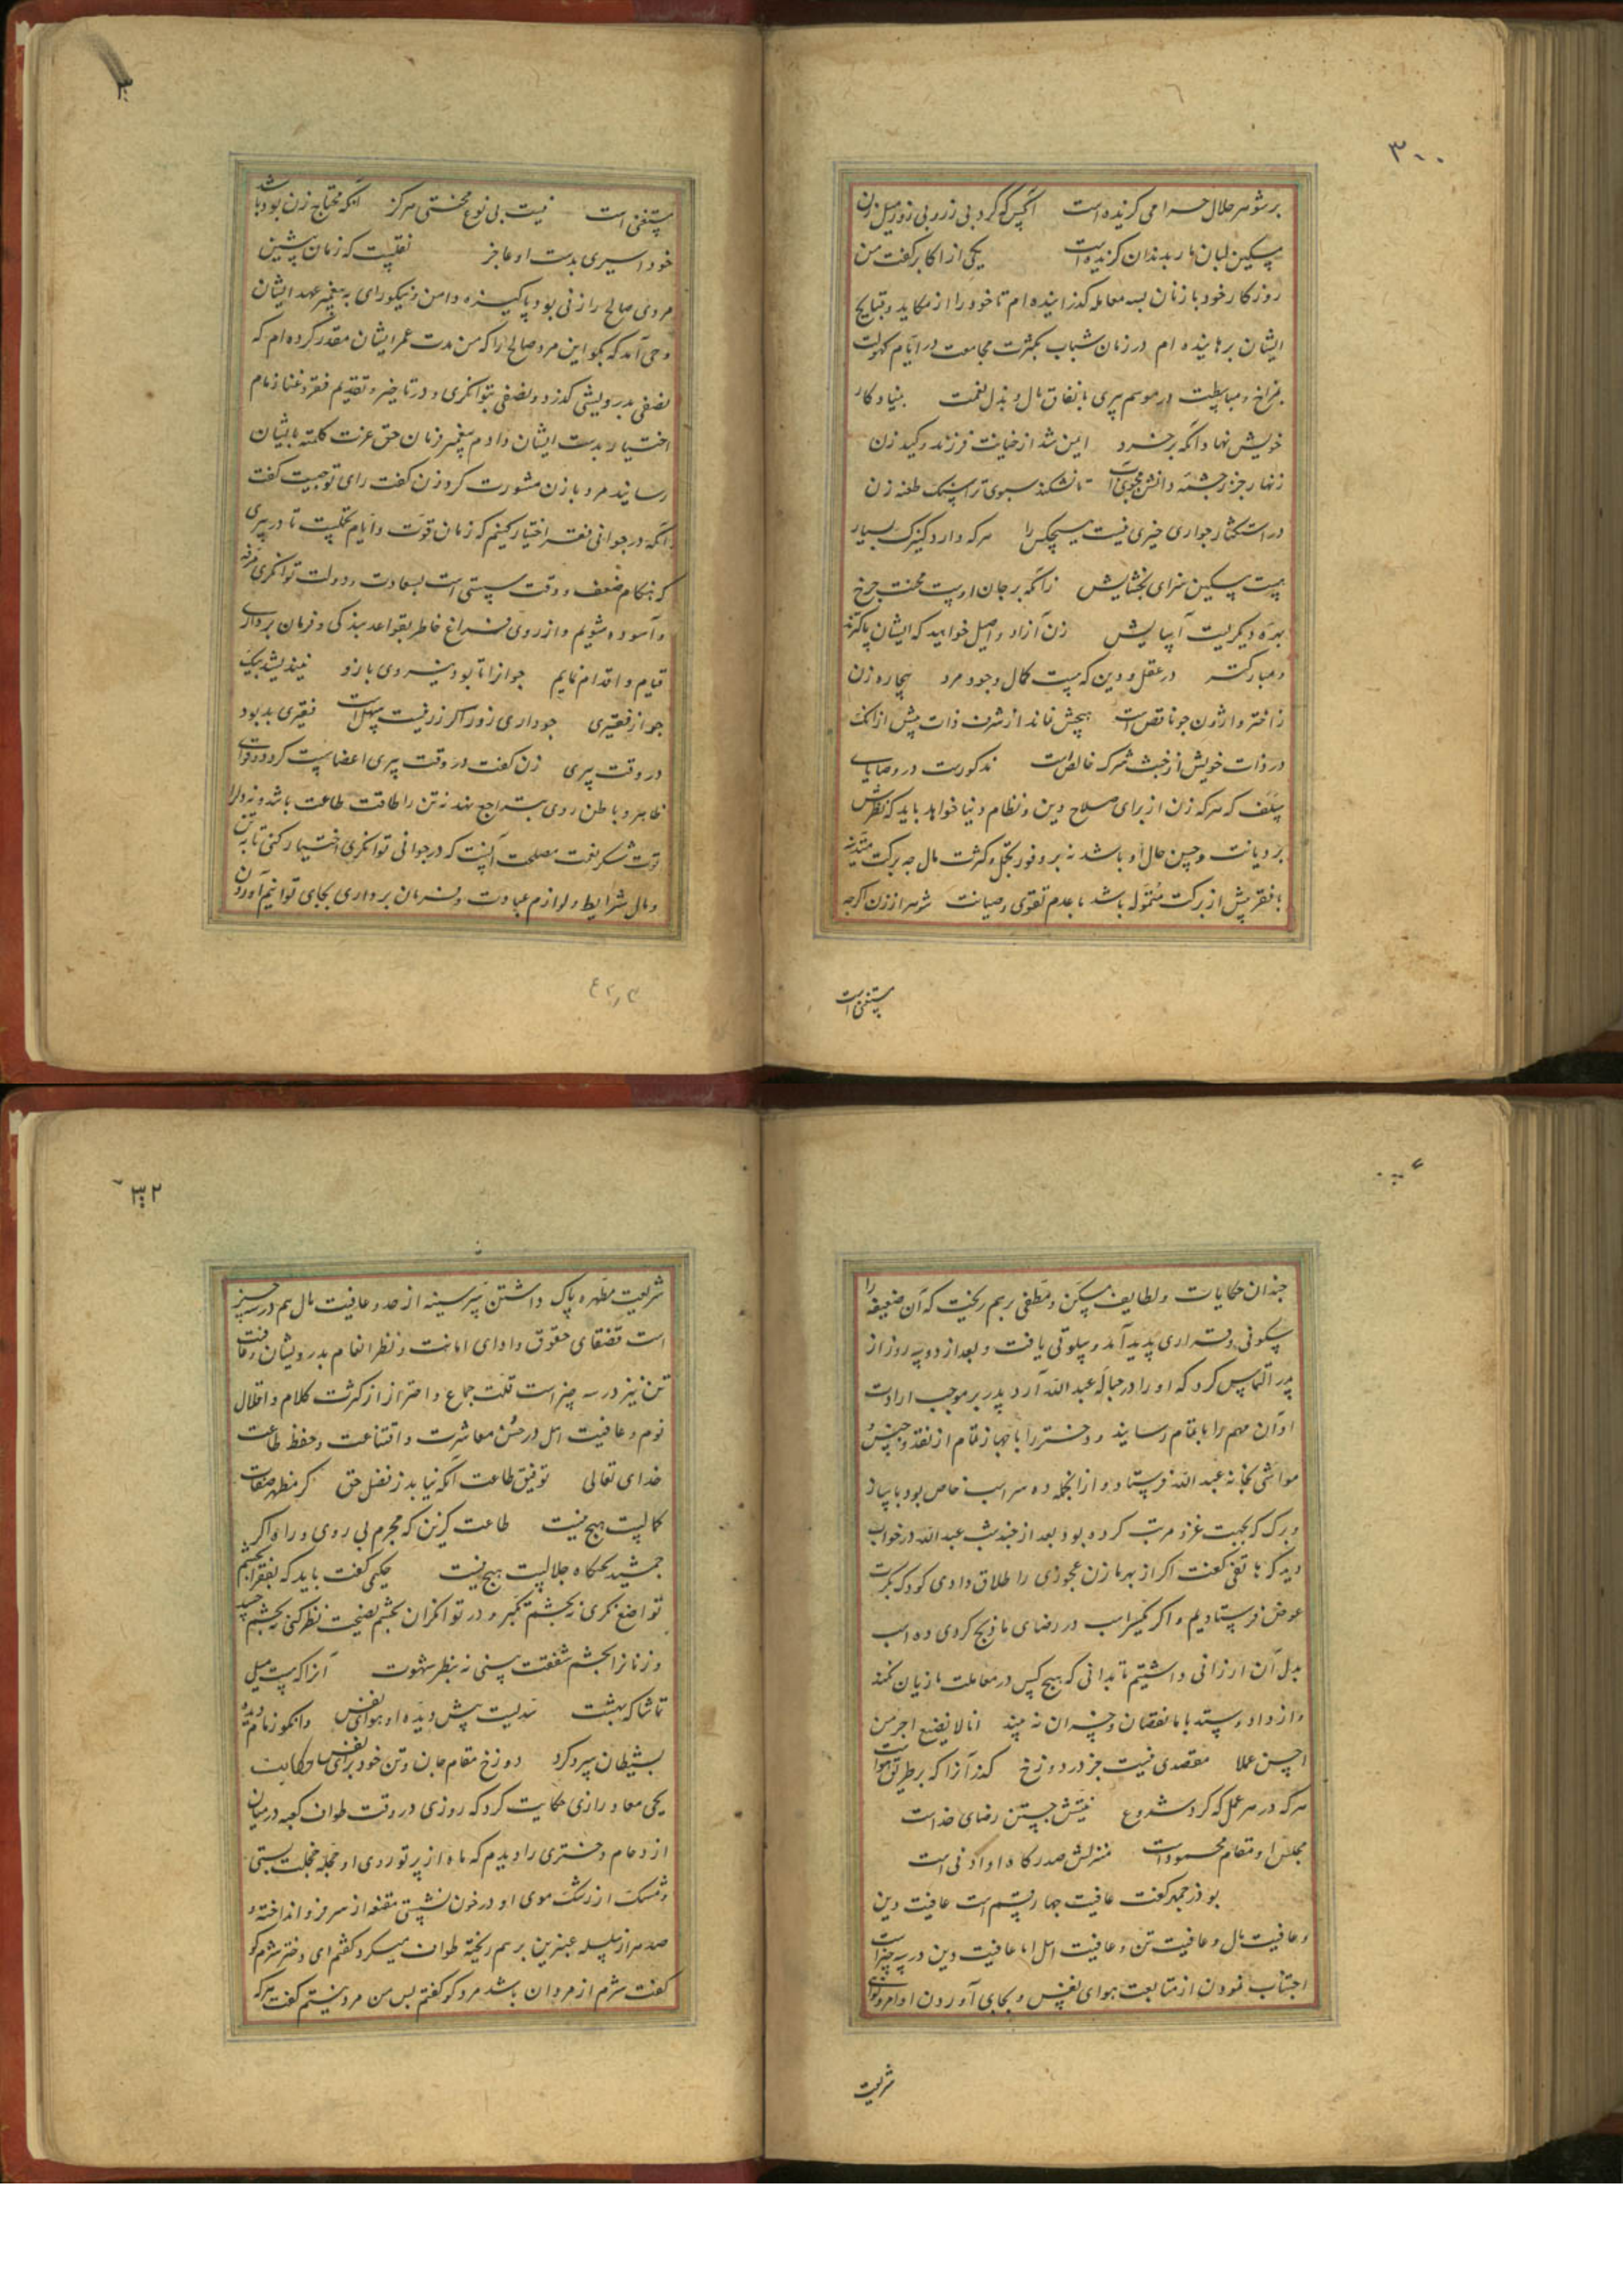 ۳۰۰
بر شوهر حلال حرامی گزیده است آنکس که کرد بی زر و بی زور میل زن
مسکین لبان مار بدندان گزیده است یکی از اکابر گفت من
روزگار خود با زنان بسه معامله گذرانیده ام تا خود را از مکاید و قبایح
ایشان برهانیده ام در زمان شباب بکثرت مجامعت در ایام کهولت
بمزاح و مباسطت در موسم پیری بانفاق مال و بذل نعمت بنیاد کار
خویش نهاد آنکه بر خرد ایمن شد از خیانت فرزند و کید زن
زنهار جز ز چشمه دانش مجوی آب تا نشکند سبوی ترا سنک طعنه زن
در استکثار جواری خیری نیست هیچکس را هر که دارد کنیزک بسیار
هست مسکین سزای بخشایش زانکه بر جان اوست محنت چرخ
بهره دیگریست آسایش زن آزاد و اصیل خواهید که ایشان پاکترند
و مبارکتر در عقل و دین که هست کمال وجود مرد بیچاره زن
ز اختر وارون چو ناقص است هیچش نماند از شرف ذات پیش از انک
در ذات خویش از خبث شرک خالص است مذکورست در وصایای
سلف که هر که زن از برای صلاح دین و نظام دنیا خواهد باید که نظرش
بر دیانت و حسن حال او باشد نه بر وفور تجمل و کثرت مال چه برکت متدینه
با فقر بیش از برکت متموله باشد با عدم تقوی و صیانت شوهر از زن اگرچه
مستغنی است
مستغنی است نیست بی نوع محنتی هرگز آنکه محتاج زن بود باشد
خود اسیری بدست او عاجز نقلیست که زمان پیشین
مردی صالح را زنی بود پاکیزه دامن و نیکورای به پیغمبر عهد ایشان
وحی آمد که بگو این مرد صالح را که من مدت عمر ایشان مقدر کرده ام که
نصفی بدرویشی گذرد و نصفی بتوانگری و در تاخیر و تقدیم فقر و غنا زمام
اختیار بدست ایشان دادم پیغمبر زمان حق عزت کلمته بایشان
رسانید مرد با زن مشورت کرد زن گفت رای تو چیست گفت
آنکه در جوانی فقر اختیار کنیم که زمان قوت و ایام تحملیست تا در پیری
که هنگام ضعف و وقت سستی است بسعادت و دولت توانگری مرفه
و آسوده شویم و از روی فراغ خاطر بقواعد بندگی و فرمان برداری
قیام و اقدام نمایم جوانرا تا بود نیروی بازو نیندیشد بیک
جو از فقیری چو داری زور اگر زر نیست سهل است فقیری بد بود
در وقت پیری زن گفت در وقت پیری اعضا سست گردد و قوای
ظاهر و باطن روی بتراجع نهد نه تن را طاقت طاعت باشد و نه دل را
قوت شکر نعمت مصلحت آنست که در جوانی توانگری اختیار کنی تا به تن
و مال شرایط و لوازم عبادت و فرمان برداری بجای توانیم آوردن
چندان حکایات و لطایف مسکن و مطفی برهم ریخت که آن ضعیفه را
سکونی و قراری پدید آمد و سلوتی یافت و بعد از دو سه روز از
پدر التماس کرد که او را در حباله عبد الله آرد پدر بر موجب ارادت
او آن مهم را باتمام رسانید و دختر را با جهاز تمام از نقد و جنس و
مواشی بخانه عبد الله فرستاد و از انجمله ده سر اسب خاص بود با ساز
و برک که بجهت غزو مرتب کرده بود بعد از چند شب عبد الله در خواب
دید که هاتفی گفت اگر از بهر ما زن عجوزی را طلاق دادی کودک بکرت
عوض فرستادیم و اگر یکسر اسب در رضای ما ذبح کردی ده اسب
بدل آن ارزانی داشتیم تا بدانی که هیچ کس در معاملت ما زیان نکند
و از داد و ستد با ما نقصان و خسران نه بیند انا لا نضیع اجر من
احسن عملا مقصدی نیست جز در دوزخ گذر آنرا که بر طریق هواست
هر که در هر عمل که کرد شروع نیتش جستن رضای خداست
مجلس او مقام محمودست منزلش صدرگاه او ادنی است
بوذرجمهر گفت عافیت چهار قسم است عافیت دین
و عافیت مال و عافیت تن و عافیت اهل اما عافیت دین در سه چیز است
اجتناب نمودن از متابعت هوای نفس و بجای آوردن اوامر و نواهی
شریعت
۳۰۲
شریعت مطهره پاک داشتن سر سینه از حسد و عافیت مال هم در سه چیز
است قضای حقوق و ادای امانت و نظر انعام بدرویشان و عافیت
تن نیز در سه چیز است قلت جماع و احتراز از کثرت کلام و اقلال
نوم و عافیت اهل در حسن معاشرت و اقتناعت و حفظ طاعت
خدای تعالی توفیق طاعت آنکه نیابد ز فضل حق گر مظهر صفات
کمالیست هیچ نیست طاعت گزین که مجرم بی روی و راه اگر
جمشید تختگاه جلالیست هیچ نیست حکیمی گفت باید که بفقرا بچشم
تواضع نگری نه بچشم تکبر و در توانگران بچشم نصیحت نظر کنی نه بچشم حسد
و زنانرا بچشم شفقت بینی نه بنظر شهوت آنرا که هست میل
تماشاکه بهشت سدیست پیش دیده او هوای نفس وانکو زمام دیده
بشیطان سپرد کرد دوزخ مقام جان و تن خود برای نفس حکایت
یحیی معاد رازی حکایت کرد که روزی در وقت طواف کعبه در میان
ازدحام دختری را دیدم که ماه از پرتو روی او در حجله خجلت نشستی
و مشک از رشک موی او در خون نشستی مقنعه از سر فرو انداخته و
صد هزار سلسله عنبرین برهم ریخته طواف میکرد گفتم ای دختر شرم کو
گفت شرم از مردان باشد مرد کو گفتم بس من مرد نیستم گفت هر که